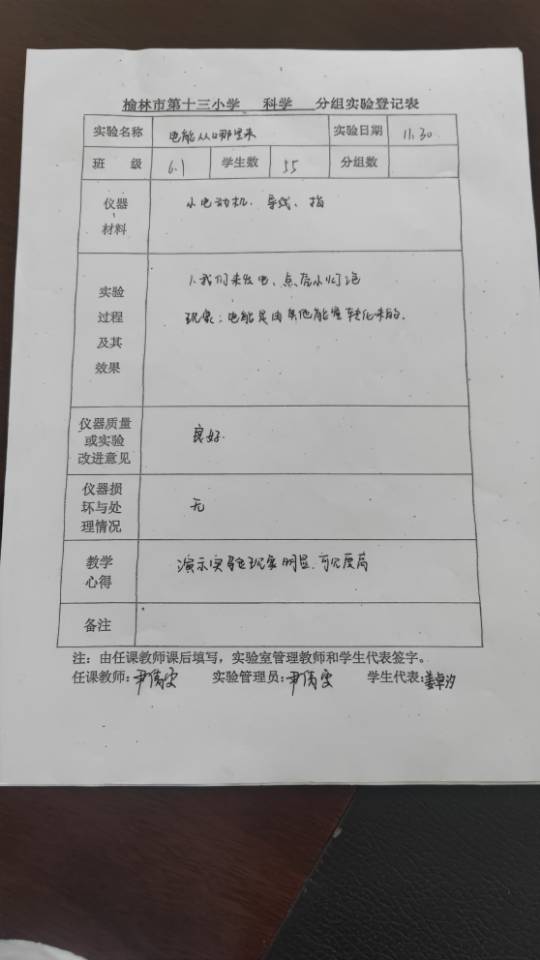 榆林市第十三小学 科学 分组实验登记表
实验名称 电能从哪里来 实验日期 11.30
班 级 6.1 学生数 55 分组数
仪器 小电动机、导线、指
材料
实验 1.我们来发电、点亮小灯泡
过程 现象:电能是由其他能量转化来的.
及其
效果
仪器质量
或实验 良好.
改进意见
仪器损
坏与处 无
理情况
教学 演示实验现象明显.可见度高
心得
备注
注:由任课教师课后填写,实验室管理教师和学生代表签字。
任课教师: 实验管理员: 学生代表: